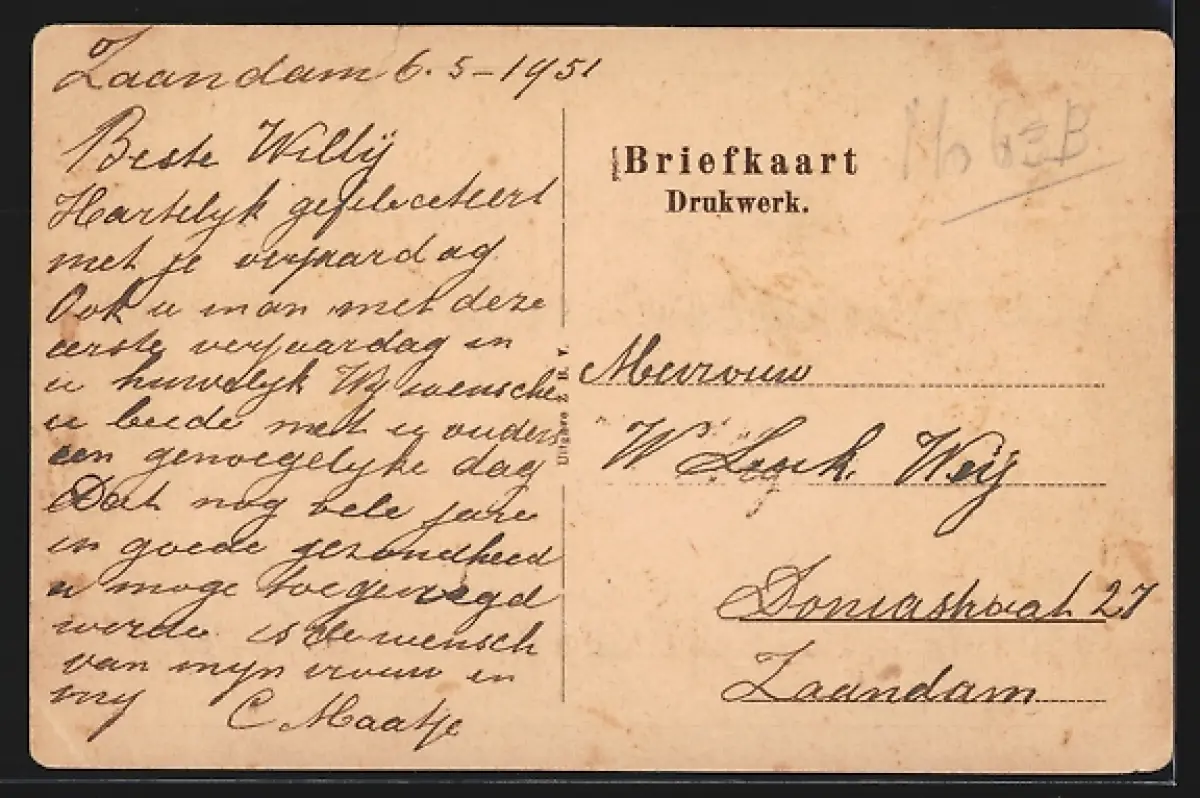 Zaandam 6.5-1951
Beste Willÿ
Hartelyk gefeleceteert
met je verjaardag
Ook u man met deze
eerste verjaardag in
u huwelyk Wy wensche
u beide met u ouders
een genoegelyke dag
Dat nog vele jare
in goede gezondheid
u moge toegevoegd
worde is de wensch
van myn vrouw en
my
C Maatje
Briefkaart
Drukwerk.
Mevrouw
W Weÿ
Doniastraat 27
Zaandam